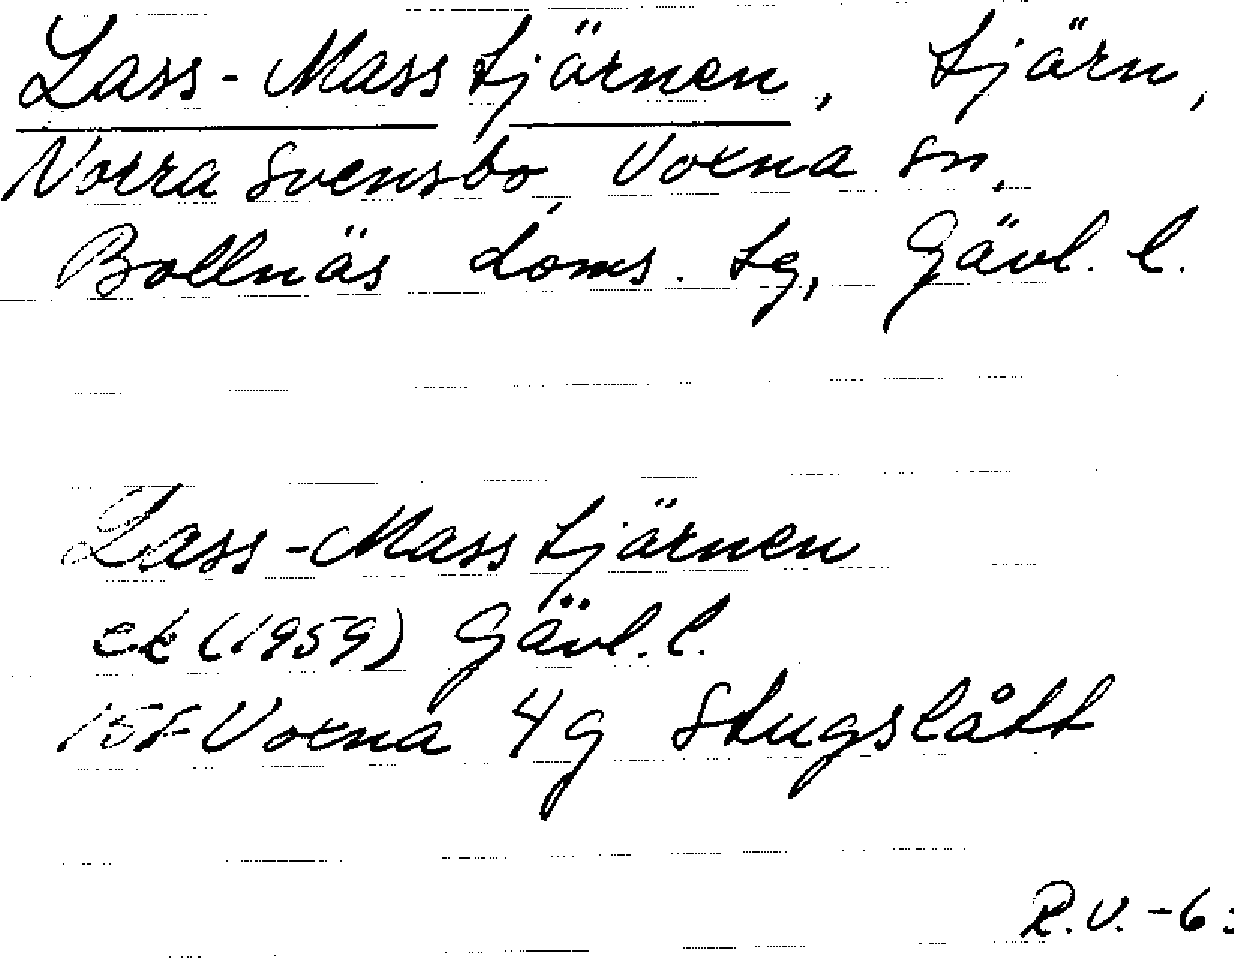 Lass-Masstjärnen, tjärn,
Norra Svensbo, Voxna sn,
Bollnäs doms. tg, Gävl. l.
Lass-Masstjärnen
ek (1959) Gävl. l.
15F Voxna 4g Stugslått
R.V. -6